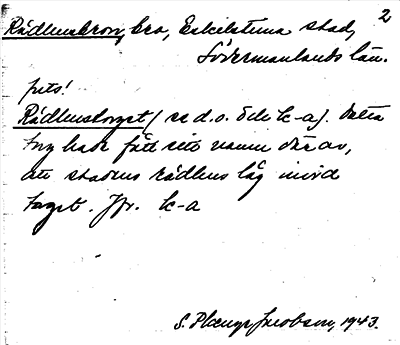 2
Rådhusbron, bro, Eskilstuna stad,
Södermanlands län.
forts!
Rådhustorget (se d.o. Ortn. k-a). Detta
torg hade fått sitt namn därav,
att stadens rådhus låg invid
torget. Jfr. k-a
S. Plænge Jacobson, 1943.